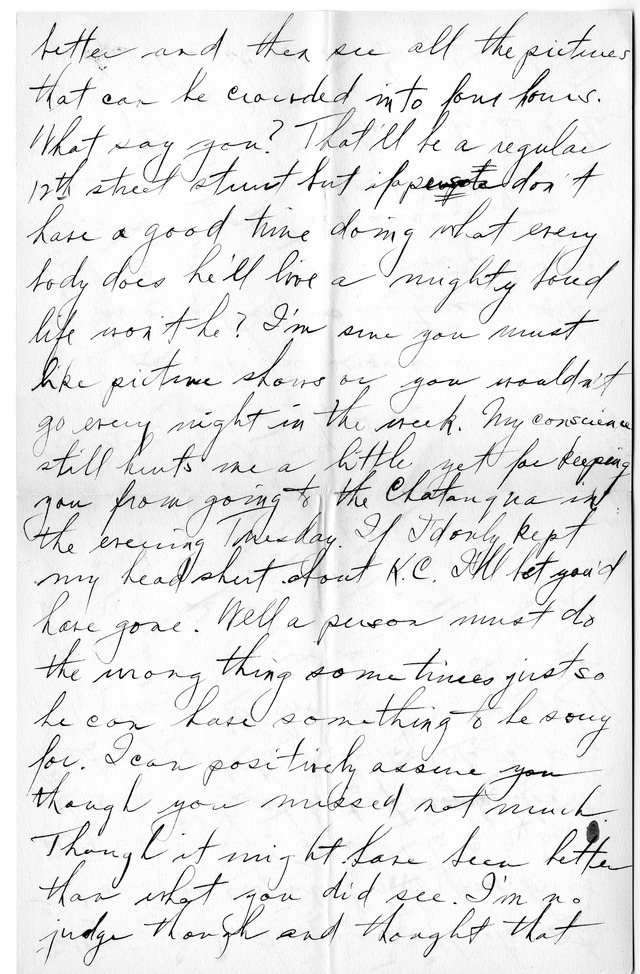 better and then see all the pictures
that can be crowded into four hours.
What say you? That'll be a regular
12th street stunt but if a person don't
have a good time doing what every
body does he'll live a mighty bored
life won't he? I'm sure you must
like picture shows or you wouldn't
go every night in the week. My conscience
still hurts me a little yet for keeping
you from going to the Chatauqua in
the evening Tuesday. If I'd only kept
my head shut about K.C. I'll bet you'd
have gone. Well a person must do
the wrong thing sometimes just so
he can have something to be sorry
for. I can positively assure you
though you missed not much.
Though it might have been better
than what you did see. I'm no
judge though and thought that